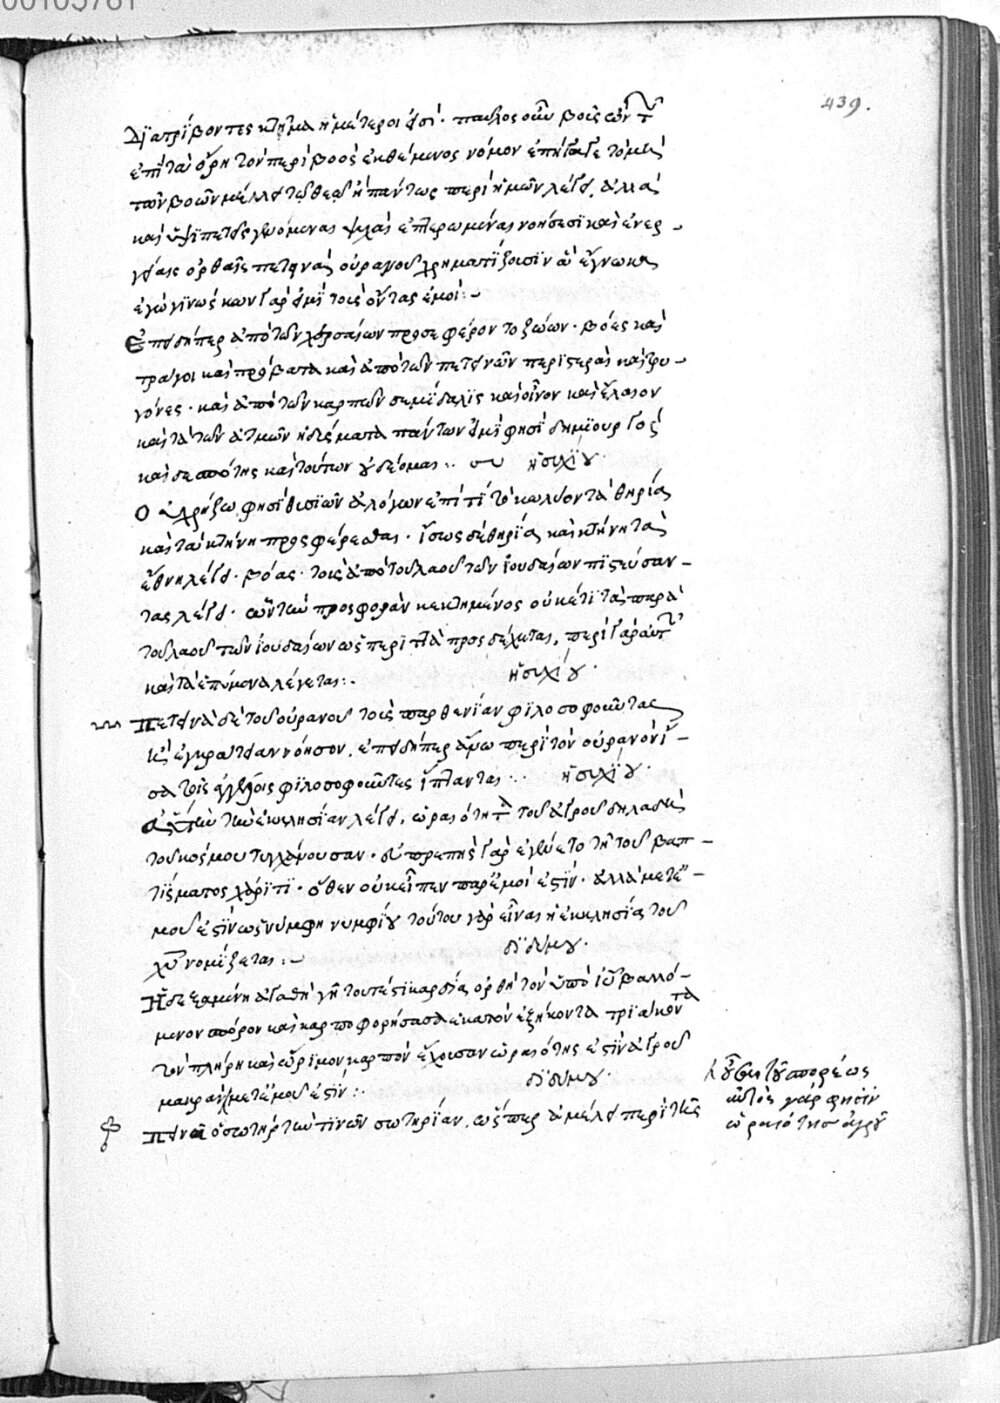 439.
διατρίβοντες κτῆμα ἡμέτεροι εἰσί· παῦλος οὖν βοῦς ὢν τ
ἐπὶ τὰ ὄρη τὸν περὶ βοὸς ἐκθέμενος νόμον ἐπήγαγε τὸ μὴ
τῶν βοῶν μέλει τῷ θεῷ ἢ πάντως περὶ ἡμῶν λέγει, ἀλλὰ
καὶ ὑψιπετεῖς γενόμενας ψυχὰς ἐπτερωμένας νοήσεσι καὶ ἐνερ
γείαις ὀρθαῖς πετεινὰ οὐρανοῦ χρηματίζουσιν ἃ ἔγνωκα
ἐγὼ γινώσκων γάρ εἰμι τοὺς ὄντας ἐμοί:
Ἐπειδήπερ ἀπὸ τῶν χερσαίων προσεφέροντο ζώων· βόες καὶ
τράγοι καὶ πρόβατα καὶ ἀπὸ τῶν πετεινῶν περιστεραὶ καὶ τρυ
γόνες· καὶ ἀπὸ τῶν καρπῶν σεμίδαλις καὶ οἶνον καὶ ἔλαιον
καὶ τὰ τῶν ἀτμῶν ἡδύσματα πάντων εἰμὶ φησὶ δημιουργὸς
καὶ δεσπότης καὶ τούτων οὐ δέομαι: ἡσυχίου·
Ὁ χρήζω φησὶ θυσιῶν ἀλόγων ἐπὶ τί τὸ κωλύον τὰ θηρία
καὶ τὰ κτήνη προσφέρεσθαι· ἴσως δὲ θηρία καὶ κτήνη τὰ
ἔθνη λέγει· βόας· τοὺς ἀπὸ τοῦ λαοῦ τῶν ἰουδαίων πιστεύσαν
τας λέγει· ὧν τὴν προσφορὰν κεκτημένος οὐκέτι τὰς παρὰ
τοῦ λαοῦ τῶν ἰουδαίων ὡς περιττὰ προσδέχεται, περὶ γὰρ αὐτ
καὶ τὰ ἑπόμενα λέγεται: ἡσυχίου·
Πετεινὰ δὲ τοῦ οὐρανοῦ τοὺς παρθενίαν φιλοσοφοῦντας
καὶ ἐγκράτειαν νόησον, ἐπειδήπερ ἄνω περὶ τὸν οὐρανὸν ἴ
σα τοῖς ἀγγέλοις φιλοσοφοῦντες ἵπτανται: ἡσυχίου·
αὐτὴν τὴν ἐκκλησίαν λέγει, ὡραιότητα τοῦ ἀγροῦ δηλαδὴ
τοῦ κόσμου τυγχάνουσαν· εὐπρεπὴς γὰρ ἐγένετο τῇ τοῦ βαπ
τίσματος χάριτι· ὅθεν οὐκ εἶπεν παρ' ἐμοί ἐστιν· ἀλλὰ μετ' ἐ
μοῦ ἐστὶν ὡς νύμφη νυμφίου τούτου γὰρ εἶναι ἡ ἐκκλησία τοῦ
χυ νομίζεται: διδύμου·
Ἡ δεξαμένη ἀγαθὴ γῆ τουτέστι καρδία, ὀρθὴ τὸν ὑπὸ ιυ βαλλό
μενον σπόρον καὶ καρποφορήσασα ἑκατὸν ἑξήκοντα τριάκοντα
τὸν πλήρη καὶ ὥριμον καρπὸν ἔχουσαν ὡραιότης ἐστὶν ἀγροῦ
μετ' ἐμοῦ ἐστίν: διδύμου·
Πεινᾷ ὁ σωτὴρ τὴν πεινῶν σωτηρίαν, ὥσπερ ἀμέλει περὶ τῆς
τοῦ σπορέως
αὐτὸς γάρ φησιν
ὡραιότης ἀγροῦ